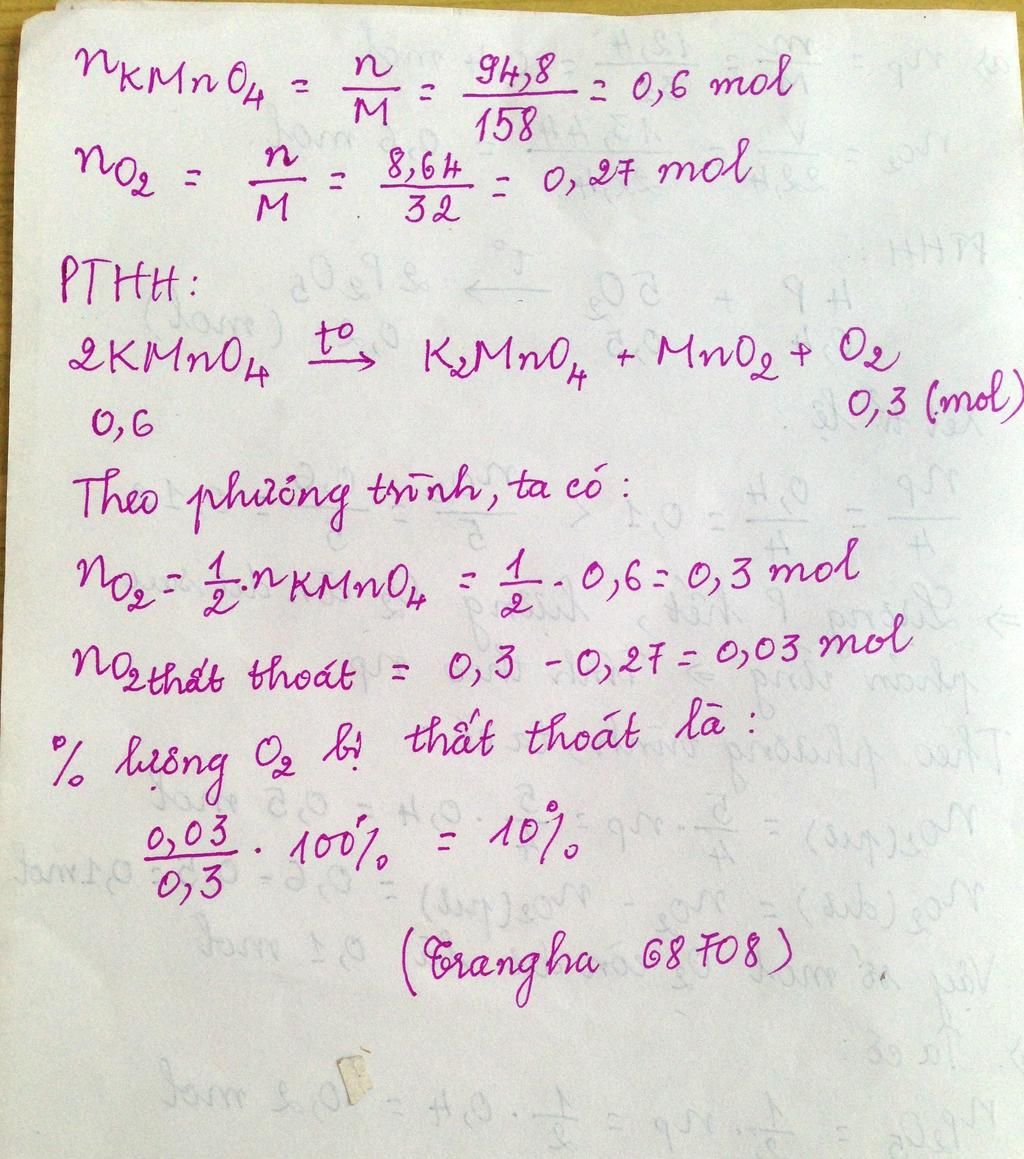 nKMnO4 = n/M = 94,8/158 = 0,6 mol
nO2 = n/M = 8,64/32 = 0,27 mol
PTHH:
2KMnO4 t° → K2MnO4 + MnO2 + O2
0,6 0,3 (mol)
Theo phương trình, ta có:
nO2 = 1/2 . nKMnO4 = 1/2 . 0,6 = 0,3 mol
nO2 thất thoát = 0,3 - 0,27 = 0,03 mol
% lượng O2 bị thất thoát là:
0,03/0,3 . 100% = 10%
(Trangha 68708)